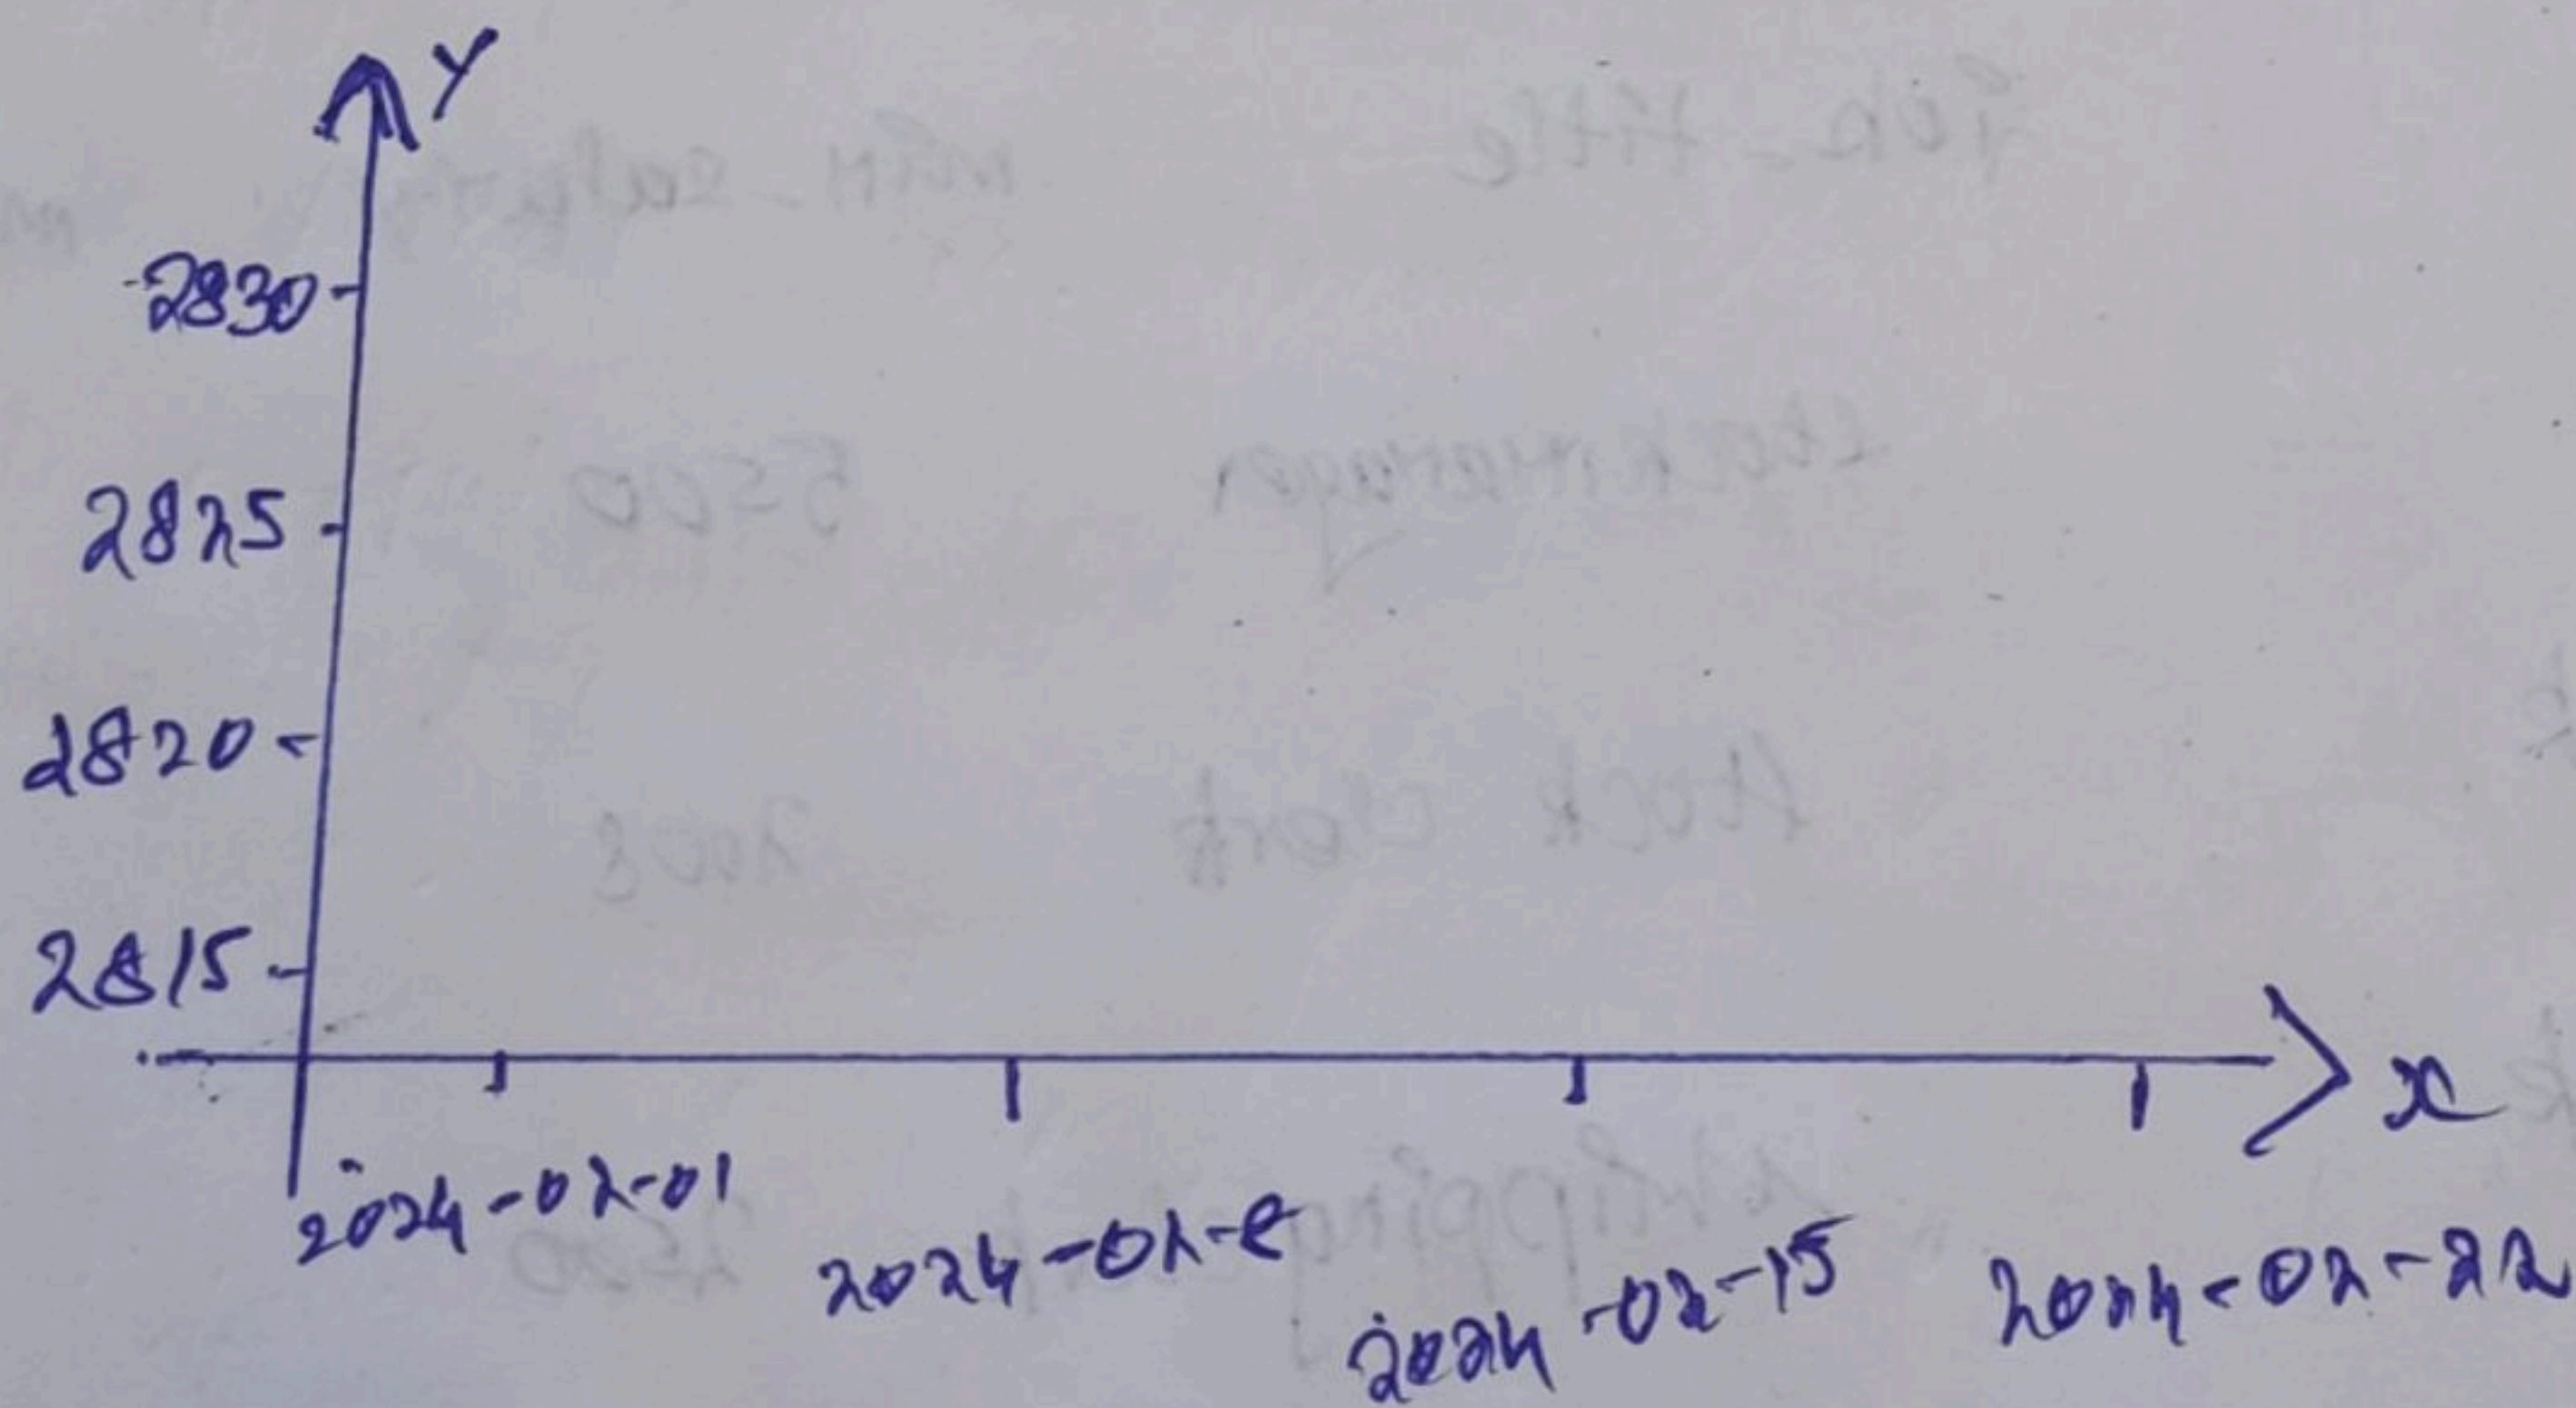 Y
2830
2825
2820
2815
x
2024-02-01
2024-02-8
2024-02-15
2024-02-22